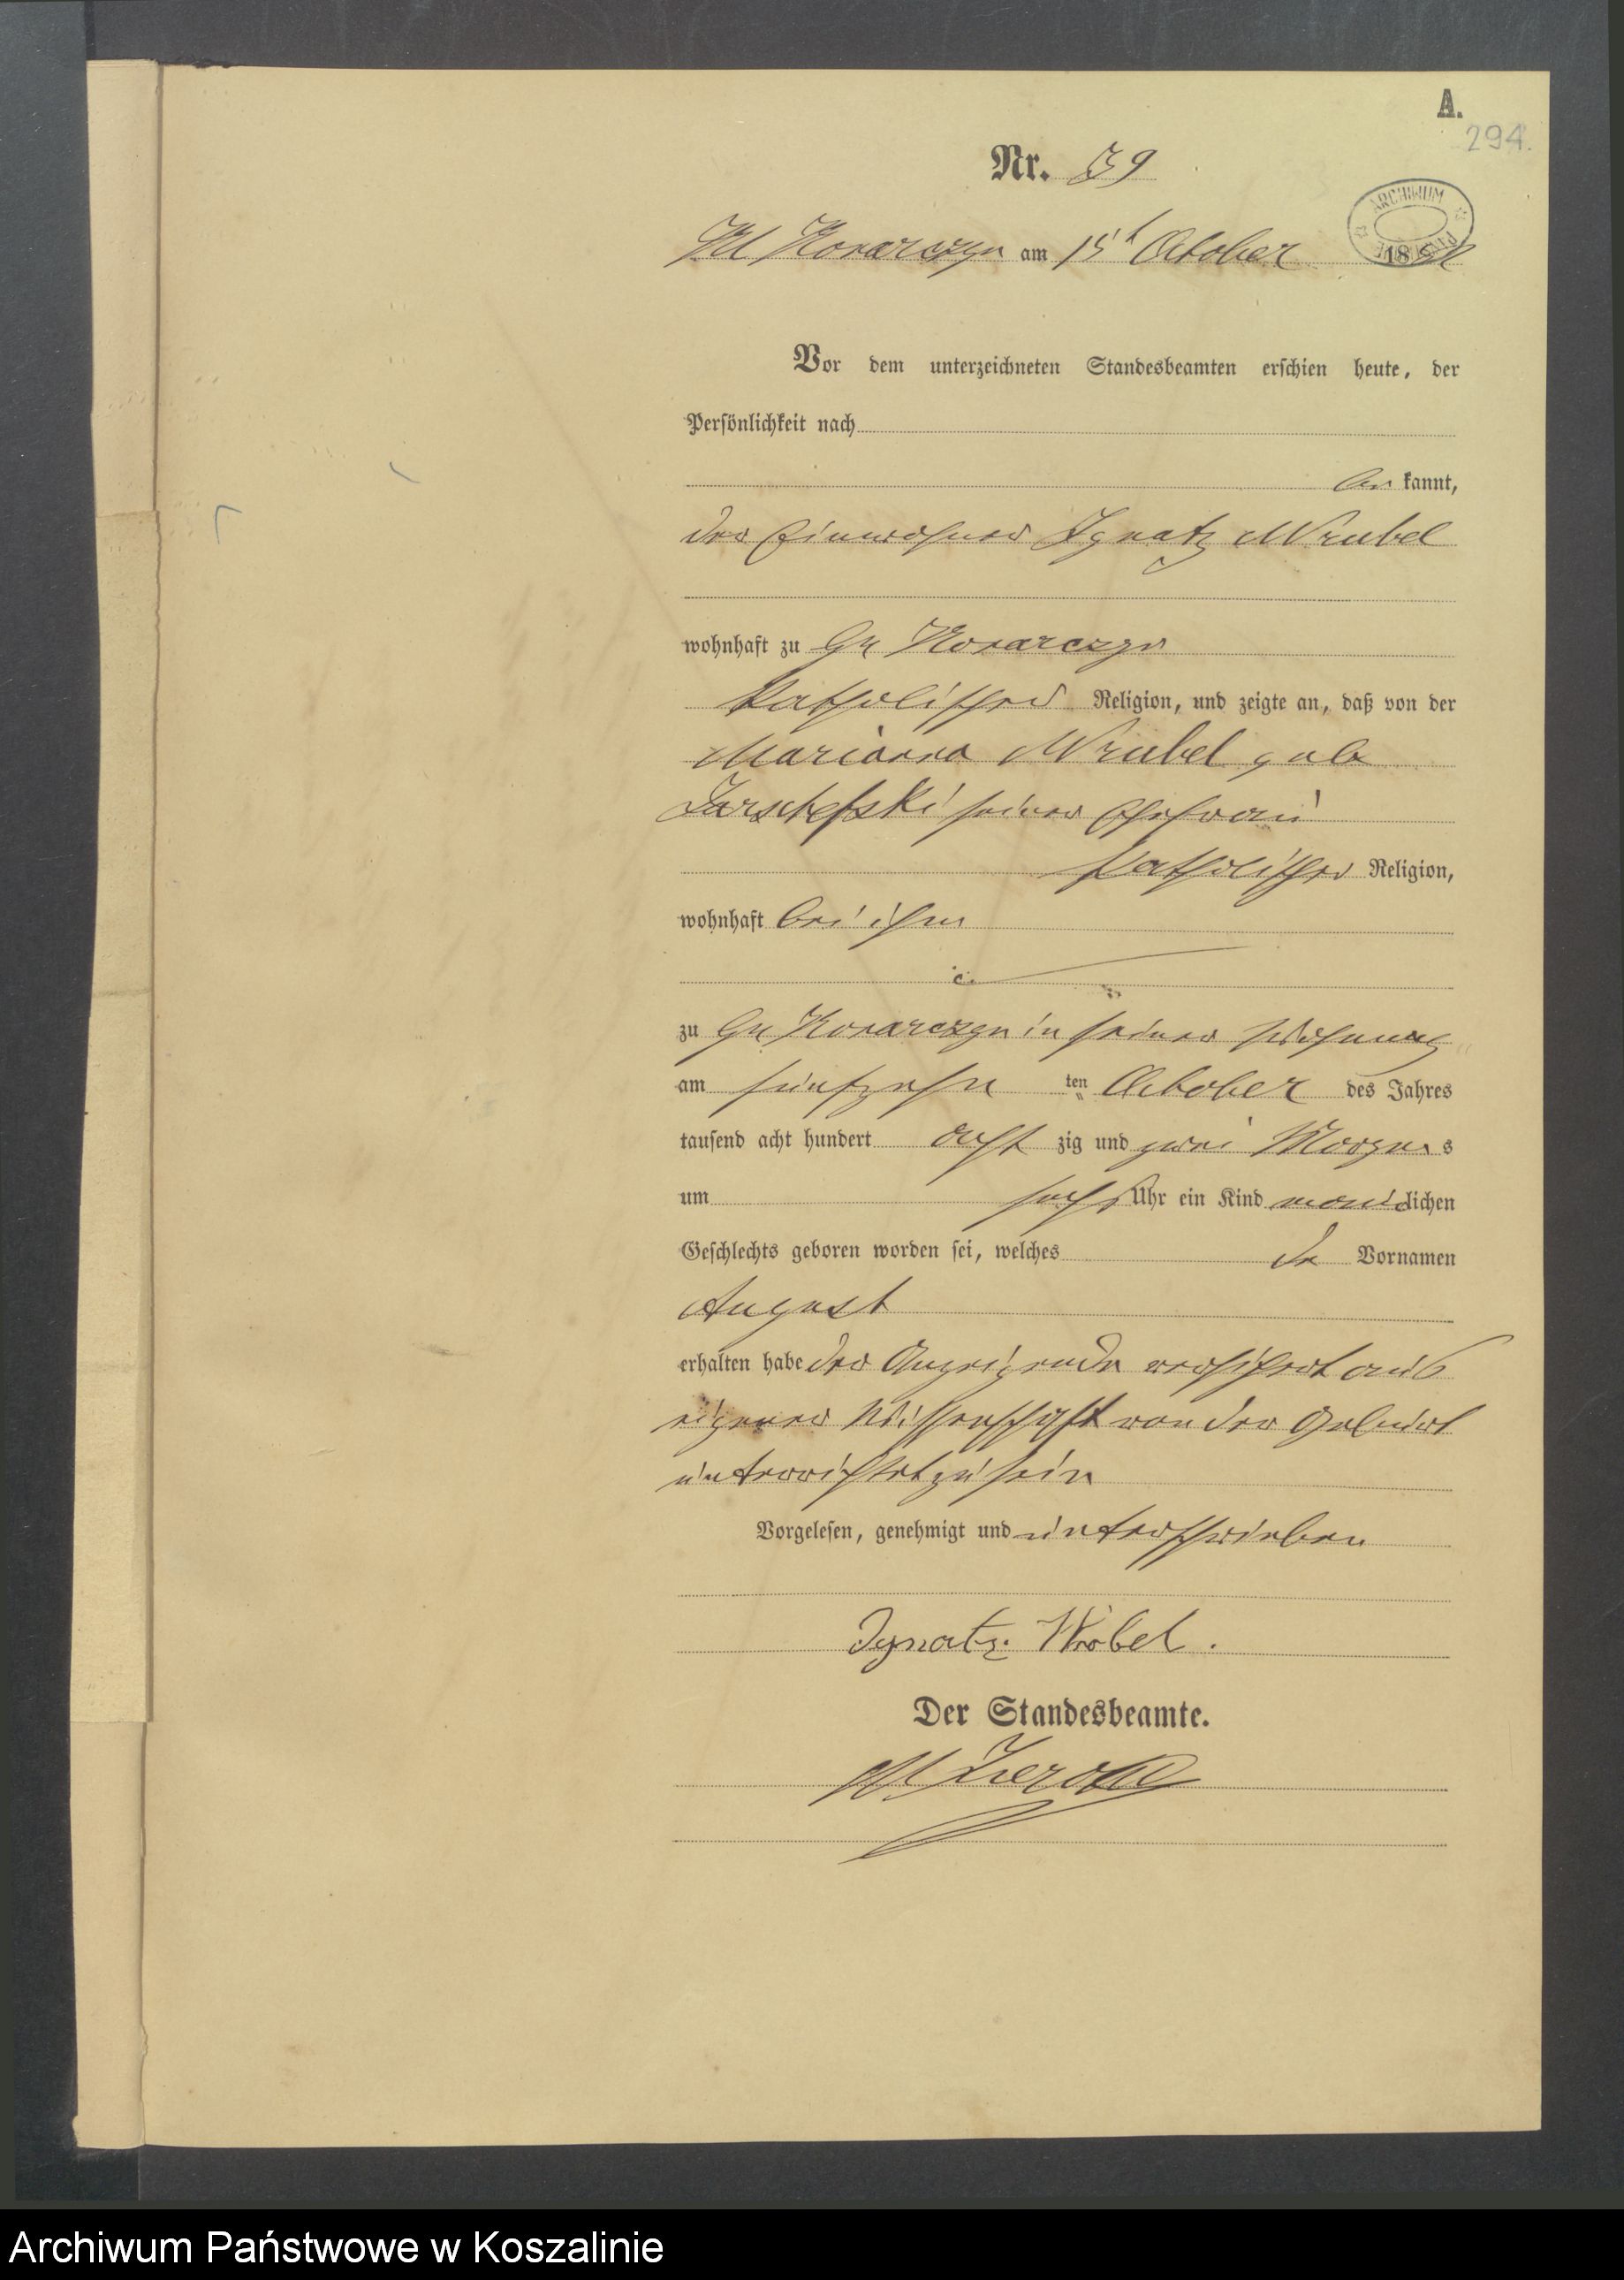 A.
294.
Nr. 39
ARCHIWUM
Kl Konarczyn am 15t October 1882
Vor dem unterzeichneten Standesbeamten erschien heute, der
Persönlichkeit nach
be kannt,
der Einwohner Ignatz Wrubel
wohnhaft zu Gr Konarczyn
katholischer Religion, und zeigte an, daß von der
Marianna Wrubel geb
seiner Ehefrau
katholischer Religion,
wohnhaft bei ihm
zu Gr Konarczyn in seiner Wohnung
am fünfzehn ten October des Jahres
tausend acht hundert acht zig und zwei Morgens
um sechs Uhr ein Kind männlichen
Geschlechts geboren worden sei, welches de Vornamen
August
erhalten habe der Anzeigende versichert aus
eigener Wissenschaft von der Geburt
unterrichtet zu sein
Vorgelesen, genehmigt und unterschrieben
Ignatz Wróbel.
Der Standesbeamte.
Archiwum Państwowe w Koszalinie